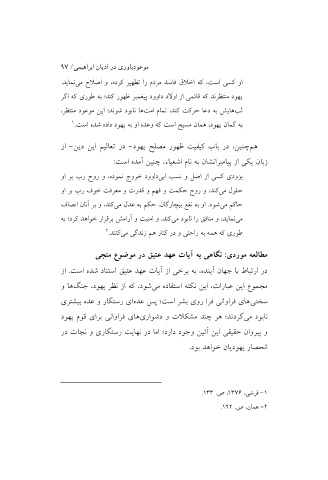 موعودباوری در ادیان ابراهیمی/ ۹۷
او کسی است، که اخلاق فاسد مردم را تطهیر کرده، و اصلاح می‌نماید.
یهود منتظرند که قائمی از اولاد داوود پیغمبر ظهور کند؛ به طوری که اگر
لب‌هایش به دعا حرکت کند، تمام امت‌ها نابود شوند؛ این موعود منتظر،
به گمان یهود، همان مسیح است که وعده او به یهود داده شده است.۱
هم‌چنین، در باب کیفیت ظهور مصلح یهود- در تعالیم این دین- از
زبان یکی از پیامبرانشان به نام اشعیاء، چنین آمده است:
بزودی کسی از اصل و نسب ابی‌داوود خروج نموده، و روح رب بر او
حلول می‌کند، و روح حکمت و فهم و قدرت و معرفت خوف رب بر او
حاکم می‌شود. او به نفع بیچارگان، حکم به عدل می‌کند، و بر آنان انصاف
می‌نماید، و منافق را نابود می‌کند، و امنیت و آرامش برقرار خواهد کرد؛ به
طوری که همه به راحتی و در کنار هم زندگی می‌کنند.۲
مطالعه موردی: نگاهی به آیات عهد عتیق در موضوع منجی
در ارتباط با جهان آینده، به برخی از آیات عهد عتیق استناد شده است. از
مجموع این عبارات، این نکته استفاده می‌شود، که از نظر یهود، جنگ‌ها و
سختی‌های فراوانی فرا روی بشر است؛ پس عده‌ای رستگار و عده بیشتری
نابود می‌گردند؛ هر چند مشکلات و دشواری‌های فراوانی برای قوم یهود
و پیروان حقیقی این آئین وجود دارد؛ اما در نهایت رستگاری و نجات در
انحصار یهودیان خواهد بود.
۱- قرشی، ۱۳۷۶، ص. ۱۳۳.
۲- همان، ص. ۱۲۲.